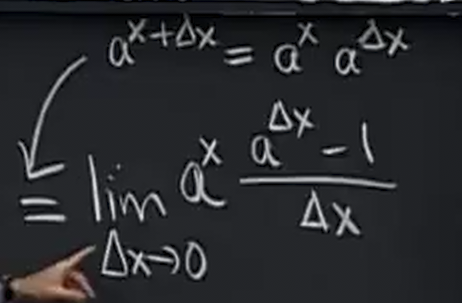 a^{x+Δx} = a^x a^{Δx}
= lim_{Δx→0} a^x \frac{a^{Δx} - 1}{Δx}